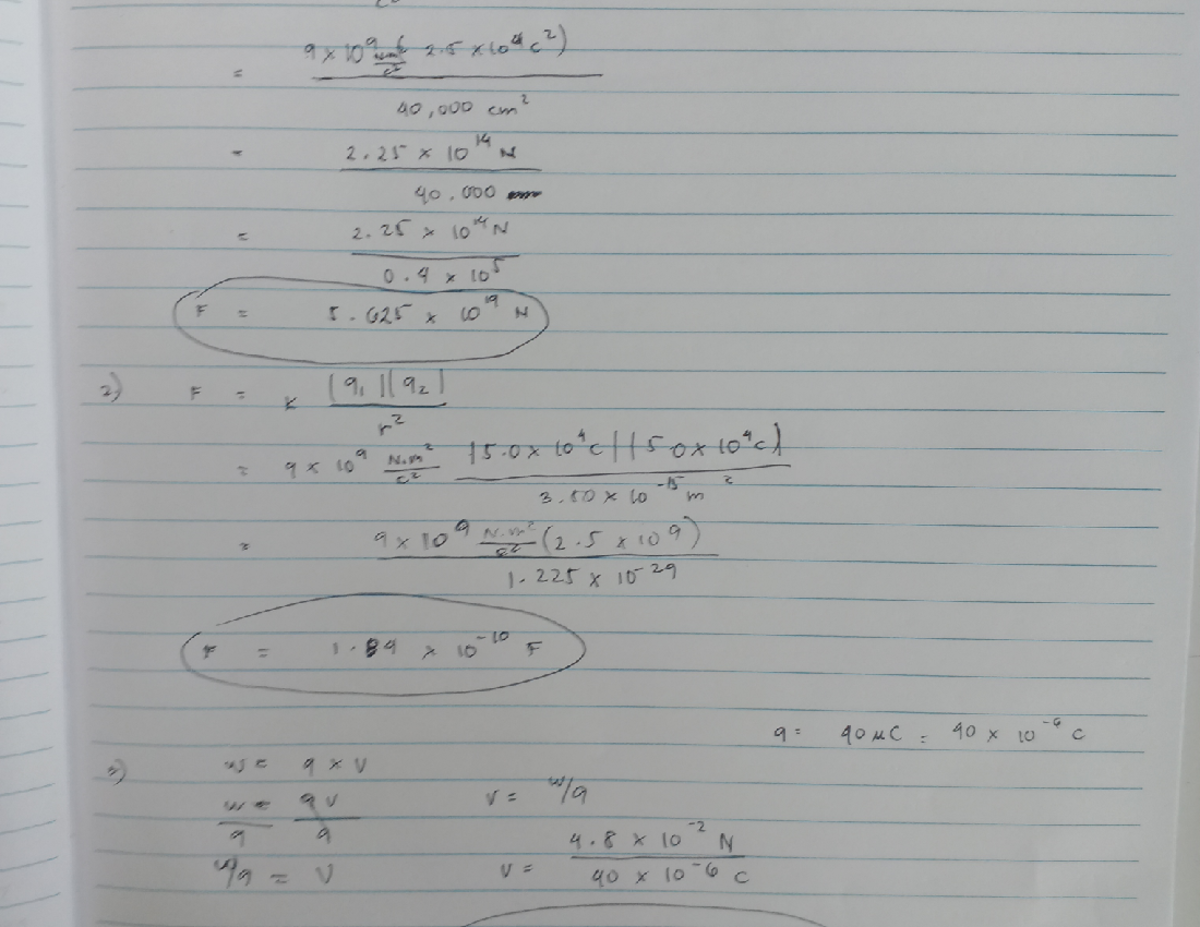 = 9 × 10⁹ 2.5 × 10⁴ c²)
40,000 cm²
= 2.25 × 10¹⁴ N
40.000
= 2.25 × 10¹⁴ N
0.4 × 10⁵
F = 5.625 × 10¹⁹ N
2) F = K |q₁||q₂|
r²
= 9 × 10⁹ N.m²/c² |5.0 × 10⁴c||50 × 10⁴c|
3.50 × 10⁻¹⁵ m²
= 9 × 10⁹ N.m²/c² (2.5 × 10⁹)
1.225 × 10⁻²⁹
F = 1.84 × 10⁻¹⁰ F
q = 40 μC = 40 × 10⁻⁶ C
3) w = q × V
w = qV V = w/q
q q
w/q = V V = 4.8 × 10⁻² N
40 × 10⁻⁶ C